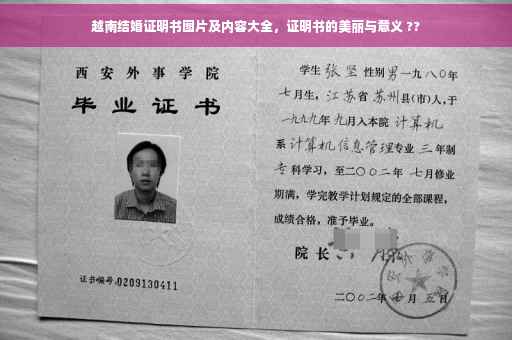 越南结婚证明书图片及内容大全，证明书的美丽与意义 ??
西安外事学院
毕业证书
证书编号:0209130411
学生 张坚 性别 男 一九八〇年
七月生，江苏省 苏州县(市)人，于
一九九九年 九月入本院 计算机
系 计算机信息管理专业 三 年制
专科学习，至二〇〇二年 七月修业
期满，学完教学计划规定的全部课程，
成绩合格，准予毕业。
院长
二〇〇二年 七月 五日